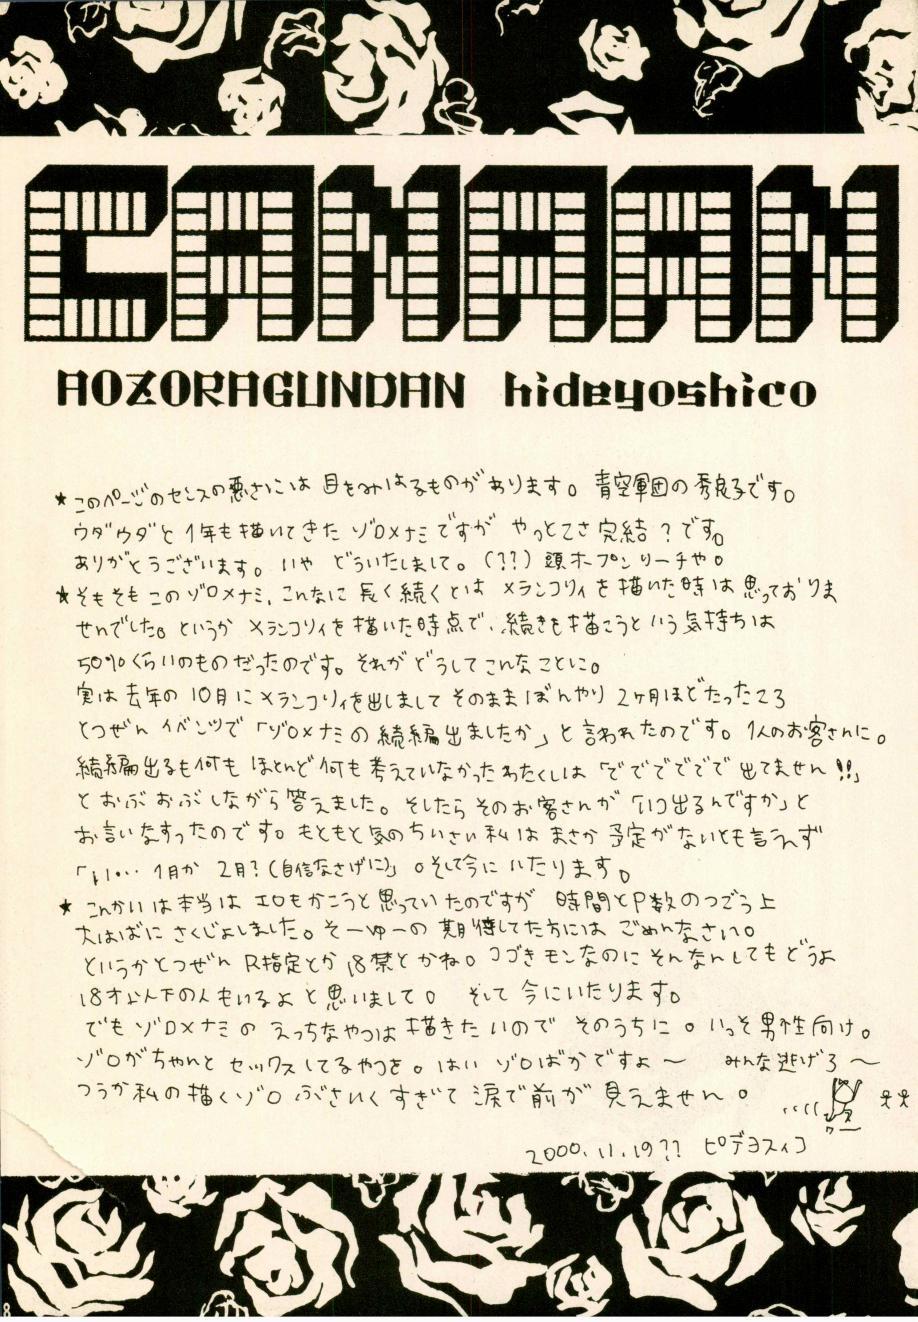 CANAAN
AOZORAGUNDAN hideyoshico
★このページのセンスの悪さには目をみはるものがあります。青空軍団の秀良子です。
ウダウダと1年も描いてきたゾロ×ナミですがやっとこさ完結?です。
ありがとうございます。いやどういたしまして。(??)頭オープンリーチや。
★そもそもこのゾロ×ナミ、こんなに長く続くとはメランコリィを描いた時は思っておりま
せんでした。というかメランコリィを描いた時点で、続きを描こうという気持ちは
50%くらいのものだったのです。それがどうしてこんなことに。
実は去年の10月にメランコリィを出しましてそのままぼんやり2ヶ月ほどたったころ
とつぜんイベンツで「ゾロ×ナミの続編出ましたか」と言われたのです。1人のお客さんに。
続編出るも何もほとんど何も考えていなかったわたくしは「でででででで出てません!!」
とおぶおぶしながら答えました。そしたらそのお客さんが「いつ出るんですか」と
お言いなすったのです。もともと気のちいさい私はまさか予定がないとも言えず
「い…1月か2月?(自信なさげに)」。そして今にいたります。
★こんかいは本当はエロもかこうと思っていたのですが時間とP数のつごう上
大はばにさくじょしました。そーゆーの期待してた方にはごめんなさい。
というかとつぜんR指定とか18禁とかね。つづきモンなのにそんなんしてもどうよ
18才以下の人もいるよと思いまして。そして今にいたります。
でもゾロ×ナミのえっちなやつは描きたいのでそのうちに。いっそ男性向け。
ゾロがちゃんとセックスしてるやつを。はいゾロばかですよ〜 みんな逃げろ〜
つうか私の描くゾロぶさいくすぎて涙で前が見えません。
2000.11.19?? ピデヨスィコ
8